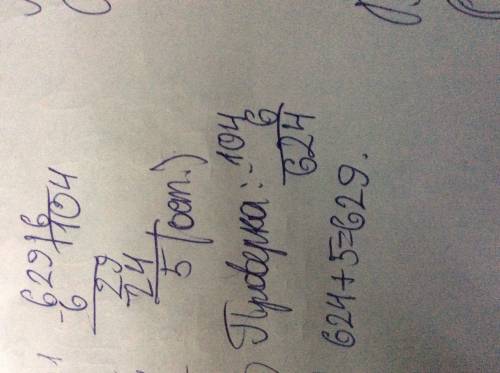 -629|6
6 |104
29
24
5 (ост.)
Проверка: 104
6
624
624+5=629.